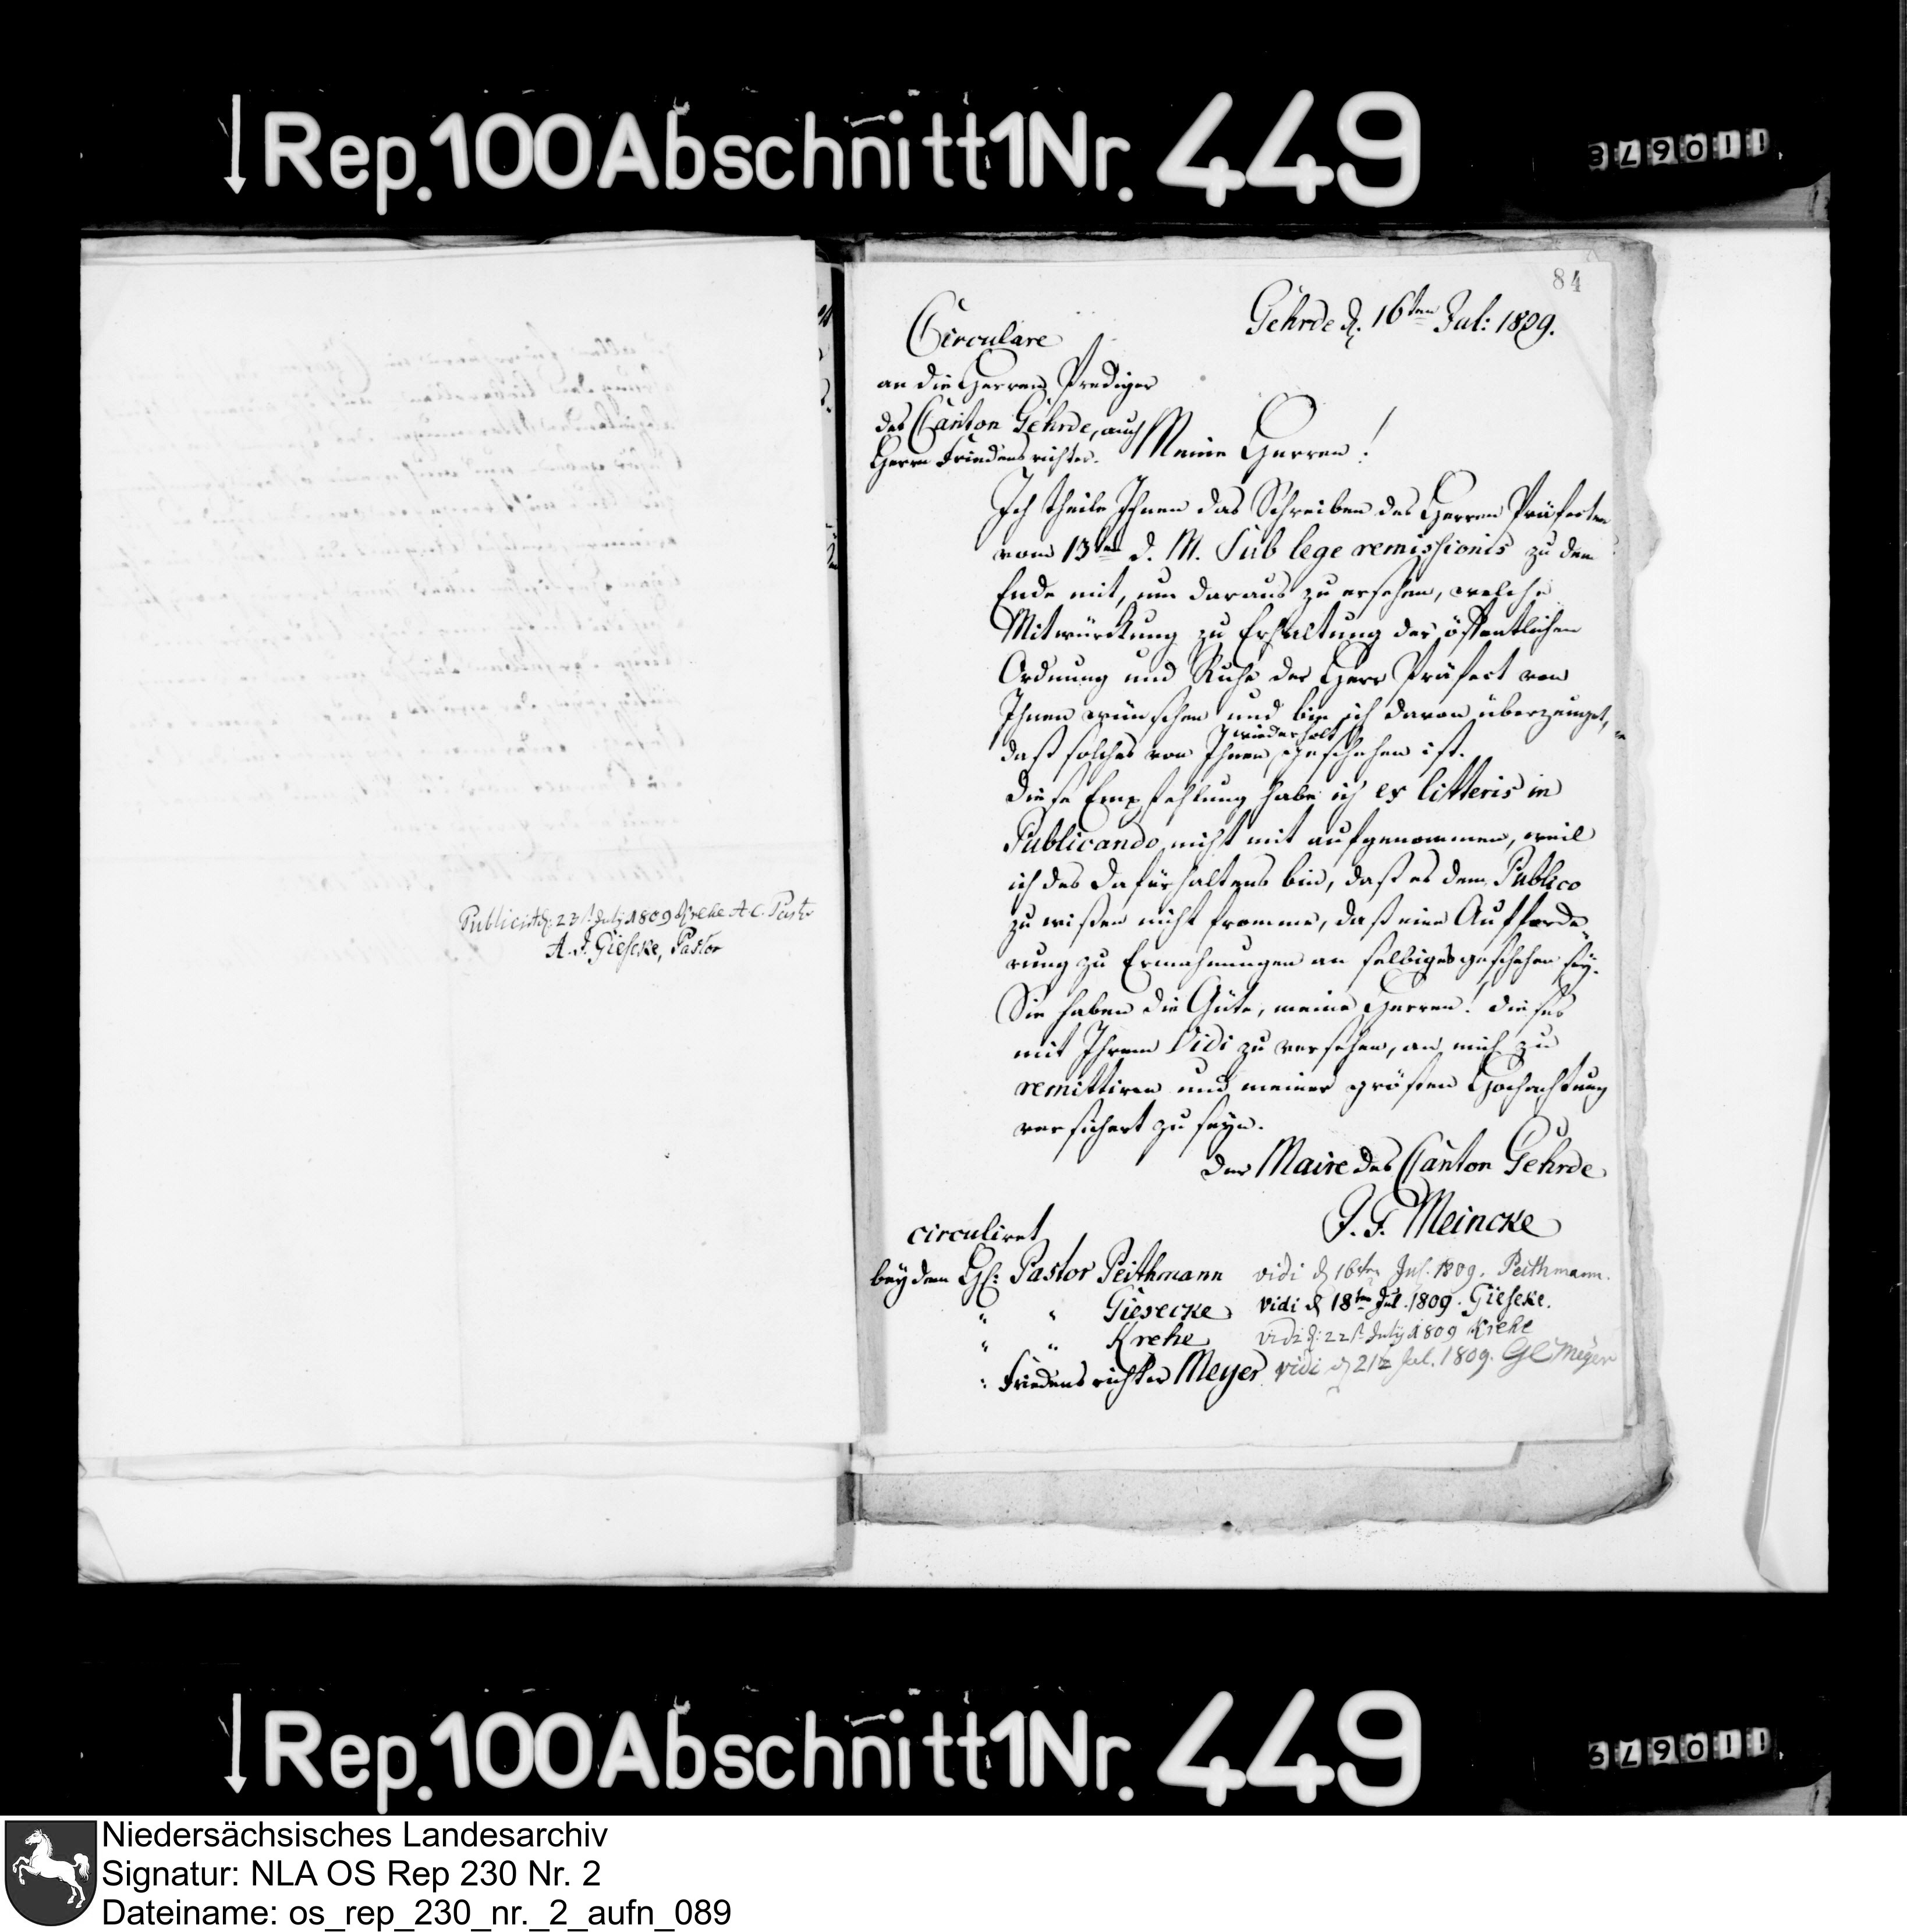 Rep.100Abschnitt1Nr. 449
Publicirt d: 23t July 1809 Krehe A. C. Past.
A. F. Gieseke, Pastor
84
Gehrde d. 16ten Jul: 1809.
Circulare
an die Herren Prediger
des Canton Gehrde, auch
Herrn Friedensrichter.
Meine Herren!
Ich theile Ihnen das Schreiben des Herren Präfecten
vom 13ten d. M. sub lege remissionis zu dem
Ende mit, um daraus zu ersehen, welche
Mitwürckung zu Erhaltung der öffentlichen
Ordnung und Ruhe der Herr Präfect von
Ihnen wünschen und bin ich davon überzeuget,
wiederholt
daß solches von Ihnen geschehen ist.
Diese Empfehlung habe ich ex litteris in
Publicando nicht mit aufgenommen, weil
ich des Dafürhaltens bin, daß es dem Publico
zu wißen nicht fromme, daß eine Aufforde-
rung zu Ermahnungen an selbiges geschehen sey.
Sie haben die Güte, meine Herren! dieses
mit Ihrem Vidi zu versehen, an mich zu
remittiren und meiner grösten Hochachtung
versichert zu seyn.
Der Maire des Canton Gehrde
J. F. Meincke
circuliret
bey dem H: Pastor Peithmann vidi d 16ten Jul. 1809. Peithmann.
" " Giesecke vidi d 18ten Jul. 1809. Gieseke.
" " Krehe vidi d: 22t July 1809 Krehe
: Friedensrichter Meyer vidi d 21t Jul. 1809. GC Meyer
Rep.100Abschnitt1Nr. 449
Niedersächsisches Landesarchiv
Signatur: NLA OS Rep 230 Nr. 2
Dateiname: os_rep_230_nr._2_aufn_089